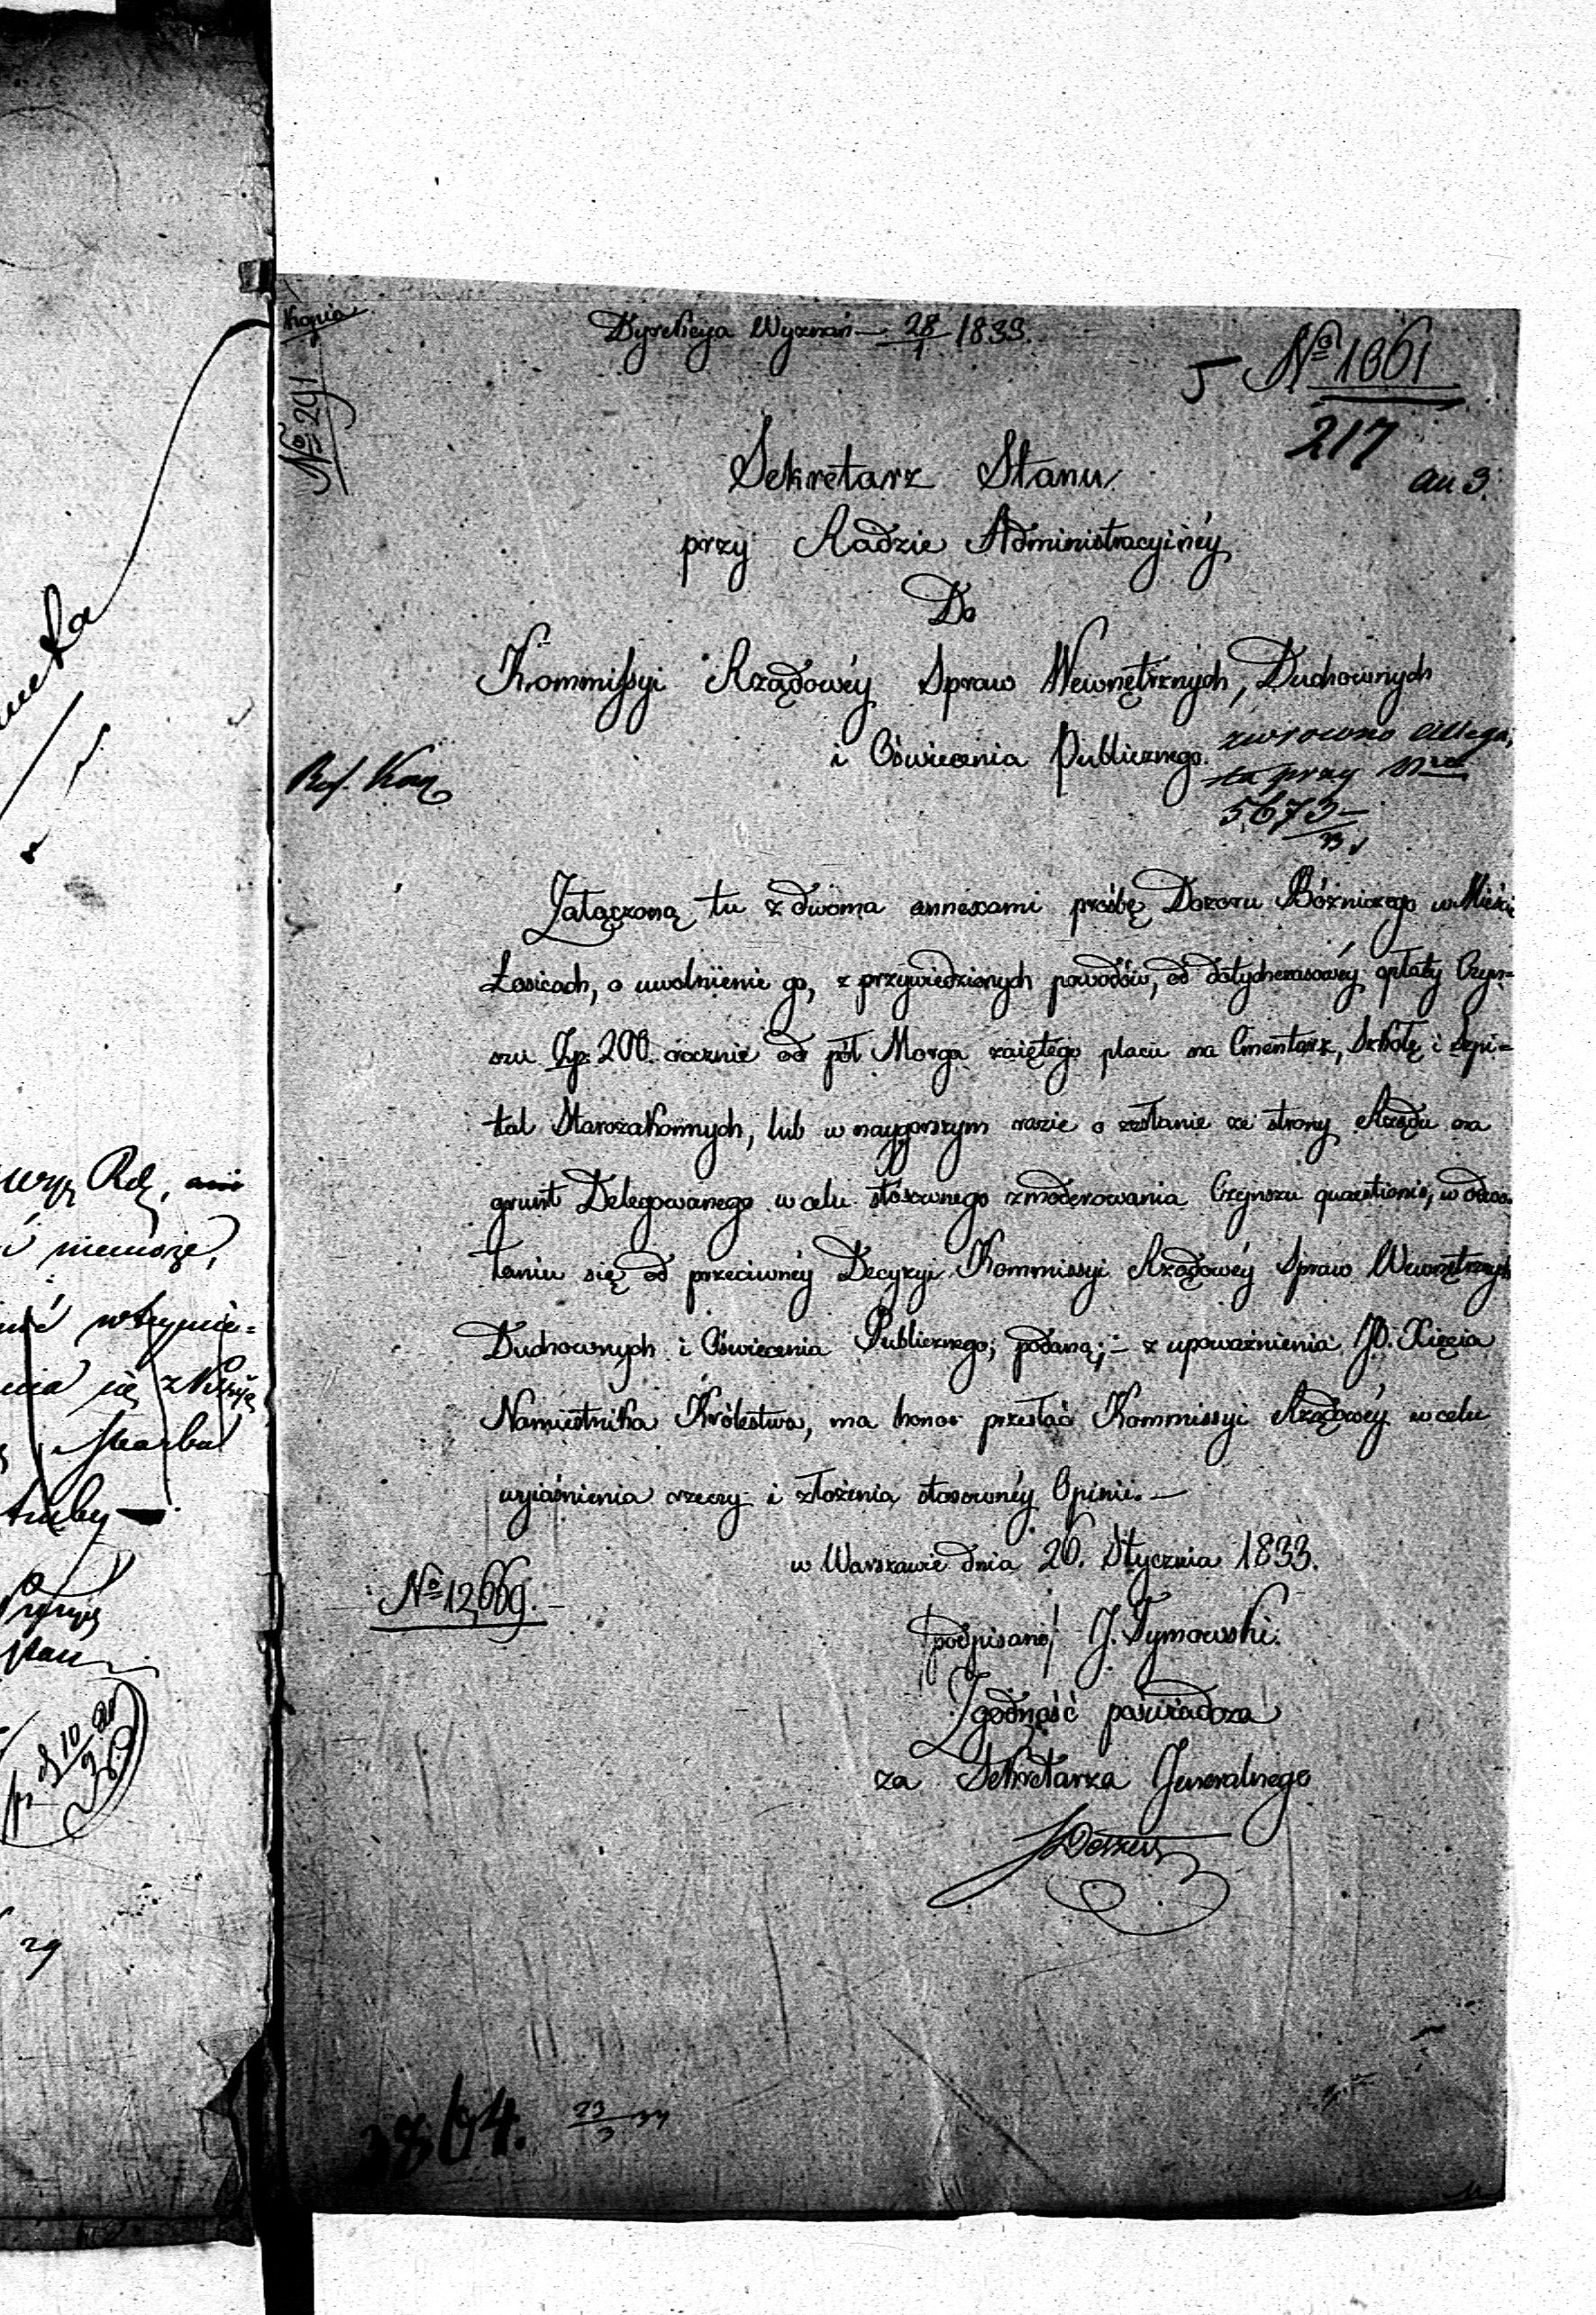 Kopia
Dyrekcya Wyznań — 28/1 1833.
№ 1361
217
№ 291
Sekretarz Stanu
przy Radzie Administracyinéy
Do
Kommissyi Rządowéy Spraw Wewnętrznych, Duchownych
i Oświecenia Publicznego.
zwrocono allega,
ta przy Nrze
5673
Załączoną tu z dwoma annexami prośbę Dozoru Bóżniczego w Mieście
Łosicach, o uwolnienie go, z przywiedzionych powodów, od dotychczasowéy opłaty Czyn=
szu Złp: 200. rocznie od pół Morga zaiętego placu na Cmentarz, Szkołę i Szpi=
tal Starozakonnych, lub w naygorszym razie o zesłanie ze strony Rządu na
grunt Delegowanego w celu stósownego zmoderowania Czynszu quaestionis, w odwo=
łaniu się od przeciwnéy Decyzyi Kommissyi Rządowéy Spraw Wewnętrznych
Duchownych i Oświecenia Publicznego; podaną; — z upoważnienia JO. Xięcia
Namiestnika Królestwa, ma honor przesłać Kommissyi Rządowéy w celu
wyiaśnienia rzeczy i złożenia stosownéy Opinii. —
w Warszawie dnia 26. Stycznia 1833.
№ 12,669.
/podpisano/ J. Tymowski.
Zgodność poświadcza
za Sekretarza Jeneralnego
23/3 33
niemoże,
29